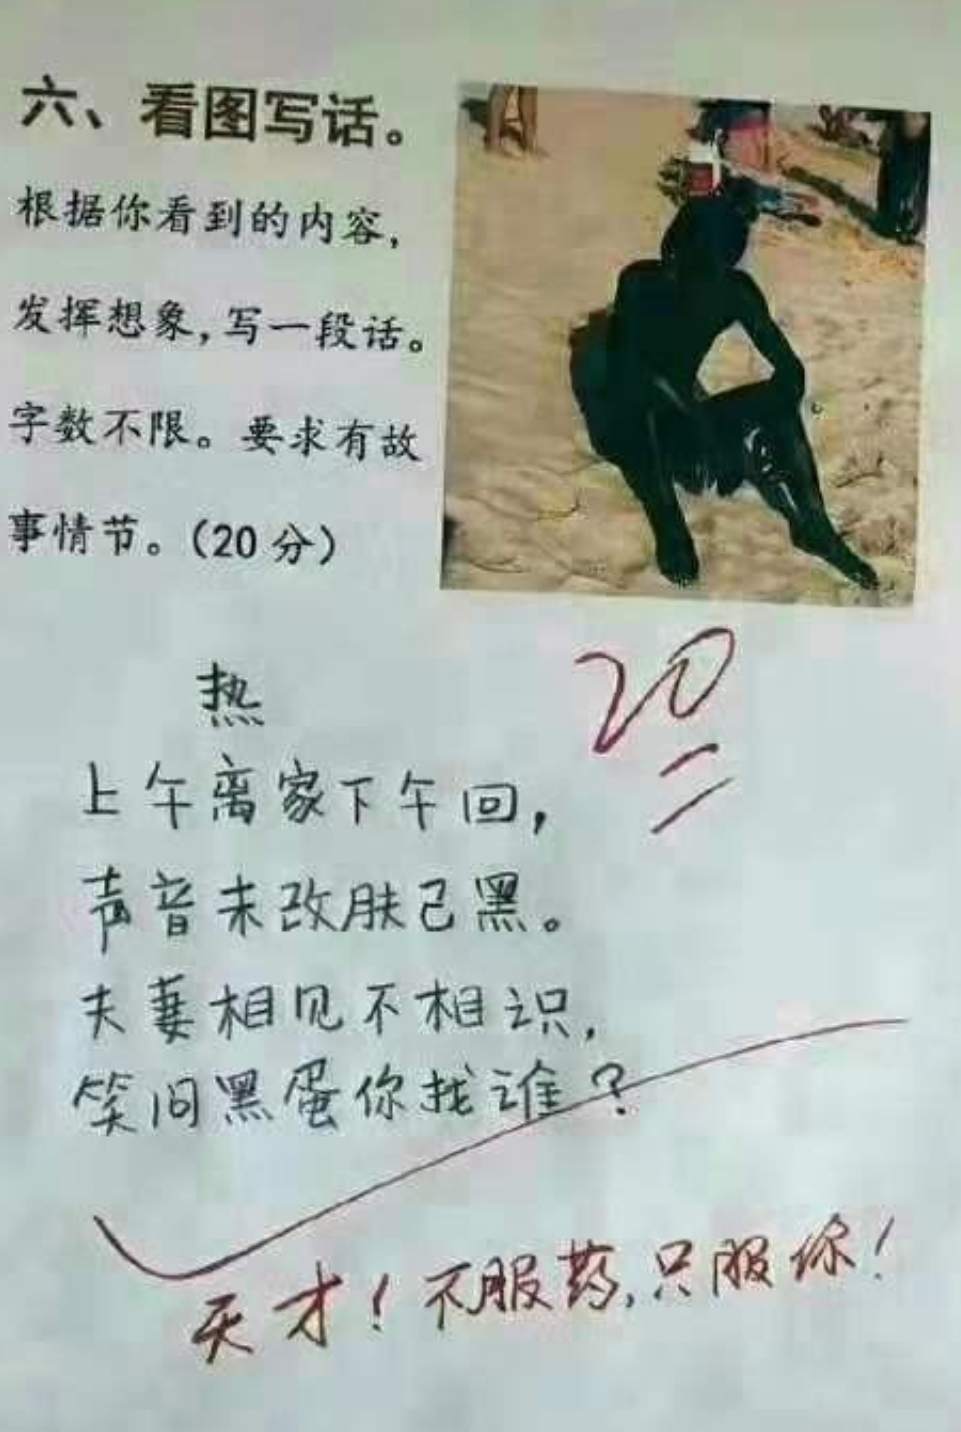 六、看图写话。
根据你看到的内容，
发挥想象，写一段话。
字数不限。要求有故
事情节。（20分）
20
热
上午离家下午回，
声音未改肤已黑。
夫妻相见不相识，
笑问黑蛋你找谁？
天才！不服药，只服你！